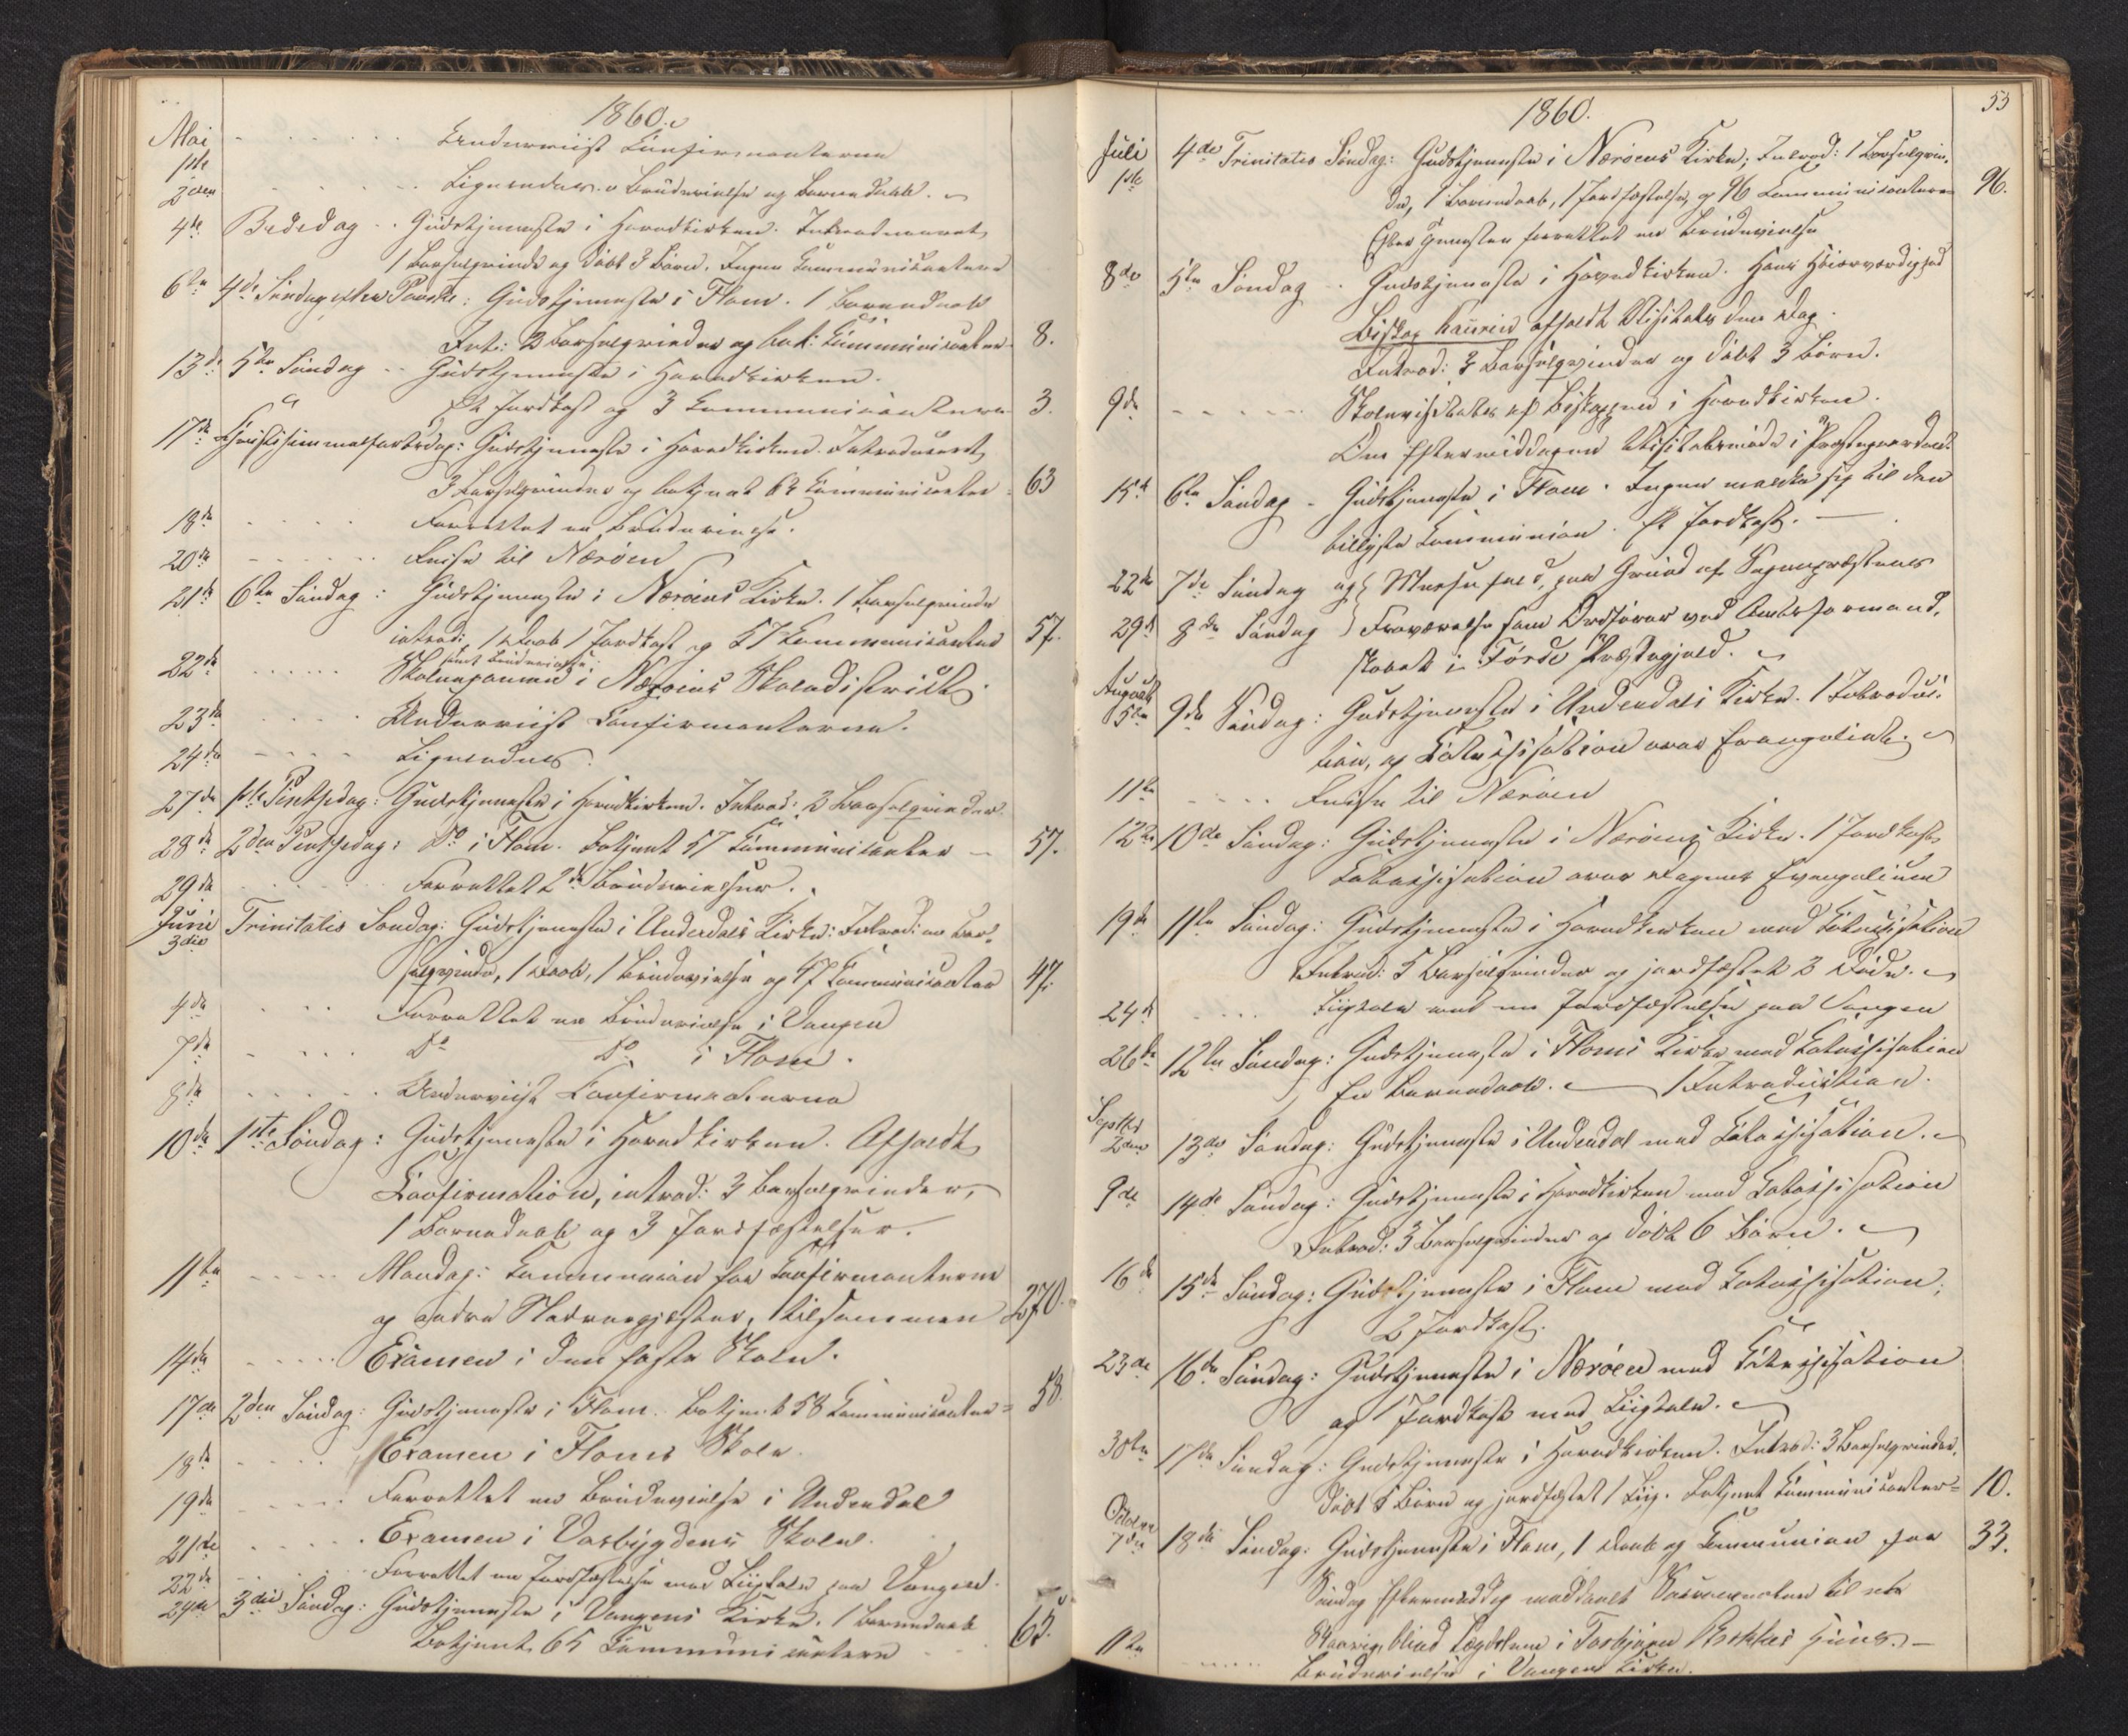 1860.
Mai 1ste - - - - - - Underviist Confirmanterne
2den - - - - - Ligesaadan. Brudevielse og Barnedaab.
4de Bededag - - Gudstjeneste i Hovedkirken. Introduceret
1 Barselqvinde og døbt 3 Børn. Ingen Communicantere
6te 4de Søndag efter Paaske: Gudstjeneste i Flam. 1 Barnedaab
Int: 3 Barselqvinder og betj: Communicanter 8.
13de 5te Søndag - - Gudstjeneste i Hovedkirken.
Et Jordkast og 3 Communicantere 3.
17de Christi Himmelfartsdag: Gudstjeneste i Hovedkirken. Introduceret
3 Barselqvinder og betjent 63 Communicanter 63
18de - - - - Forrettet en Brudevielse.
20de - - - - - Reise til Nærøen
21de 6te Søndag: Gudstjeneste i Nærøens Kirke. 1 Barselqvinde
introd: 1 Daab 1 Jordkast og 57 Communicanter 57.
samt Brudevielse.
22de - - - - - Skoleexamen i Nærøens Skoledistrict.
23de - - - - Underviist Confirmanterne.
24de - - - - Ligesaadan.
27de 1ste Pintsedag: Gudstjeneste i Hovedkirken. Introd: 3 Barselqvinder
28de 2den Pintsedag: Do i Flam. Betjent 57 Communicanter - 57.
29de - - - - - Forrettet 2de Brudevielser.
Juni 3die Trinitatis Søndag: Gudstjeneste i Undredals Kirke: Introd: en Bar-
selqvinde, 1 Daab, 1 Brudevielse og 47 Communicanter 47.
4de - - - Forrettet en Brudevielse i Vangen
7de - - - - Do Do i Flam.
8de - - - - - Underviist Confirmanterne
10de 1ste Søndag: Gudstjeneste i Hovedkirken. Afholdt
Confirmation, introd: 3 Barselqvinder,
1 Barnedaab og 3 Jordfæstelser.
11te - - - - - Mandag: Communion for Confirmanterne
og andre Nadvergjæster, tilsammen 270.
14de - - - - - Examen i den faste Skole.
17de 2den Søndag: Gudstjeneste i Flam. Betjent 58 Communicanter 58
18de - - - - Examen i Flams Skole.
19de - - - - - Forrettet en Brudevielse i Undredal
21de - - - - - Examen i Vasbygdens Skole.
22de - - - Forrettet en Jordfæstelse med Liigtale paa Vangen.
24de 3die Søndag: Gudstjeneste i Vangens Kirke. 1 Barnedaab
Betjent 65 Communicantere 65.
53
1860.
Juli 1ste 4de Trinitatis Søndag: Gudstjeneste i Nærøens Kirke; Introd: 1 Barselqvin-
de, 1 Barnedaab, 1 Jordfæstelse, og 96 Communicantere 96.
Efter Tjenesten forrettet en Brudevielse
8de 5te Søndag - - Gudstjeneste i Hovedkirken. Hans Høiærværdighed
Biskop Kaurin afholdt Visitats den Dag.
Introd: 3 Barselqvinder og døbt 3 Børn.
9de - - - - - Skolevisitats af Biskoppen i Hovedkirken.
Om Eftermiddagen Visitatsmøde i Præstegaarden.
15de 6te Søndag - Gudstjeneste i Flam. Ingen meldte sig til den
tillyste Communion. Et Jordkast. —
22de 7de Søndag og { Messefald, paa Grund af Sognepræstens
29de 8de Søndag } Fraværelse som Ordfører ved Amtsformand-
skabet i Førde Præstegjeld.
August 5te 9de Søndag: Gudstjeneste i Undredals Kirke. 1 Introduc-
tion, og Catechisation over Evangeliet.
11te - - - - Reise til Nærøen
12te 10de Søndag: Gudstjeneste i Nærøens Kirke. 1 Jordkast,
Catechisation over Dagens Evangelium
19de 11te Søndag: Gudstjeneste i Hovedkirken med Catechisation
Introd: 5 Barselqvinder og jordfæstet 2 Døde.
24de - - - - Liigtale ved en Jordfæstelse paa Vangen
26de 12te Søndag: Gudstjeneste i Flams Kirke med Catechisation
En Barnedaab. — 1 Introduction.
Septbr 2den 13de Søndag: Gudstjeneste i Undredal med Catechisation.
9de 14de Søndag: Gudstjeneste i Hovedkirken med Catechisation
Introd: 3 Barselqvinder og døbt 6 Børn.
16de 15de Søndag: Gudstjeneste i Flam med Catechisation;
2 Jordkast.
23de 16de Søndag: Gudstjeneste i Nærøen med Catechisation
og 1 Jordkast med Liigtale.
30te 17de Søndag: Gudstjeneste i Hovedkirken. Introd: 3 Barselqvinder,
døbt 5 Børn og jordfæstet 1 Liig. Betjent Communicanter 10.
October 7de 18de Søndag: Gudstjeneste i Flam, 1 Daab og Communion for 33.
Søndag Eftermiddag meddeelt Sacramentet til
blind i Huus.
11te - - - - Brudevielse i Vangens Kirke.